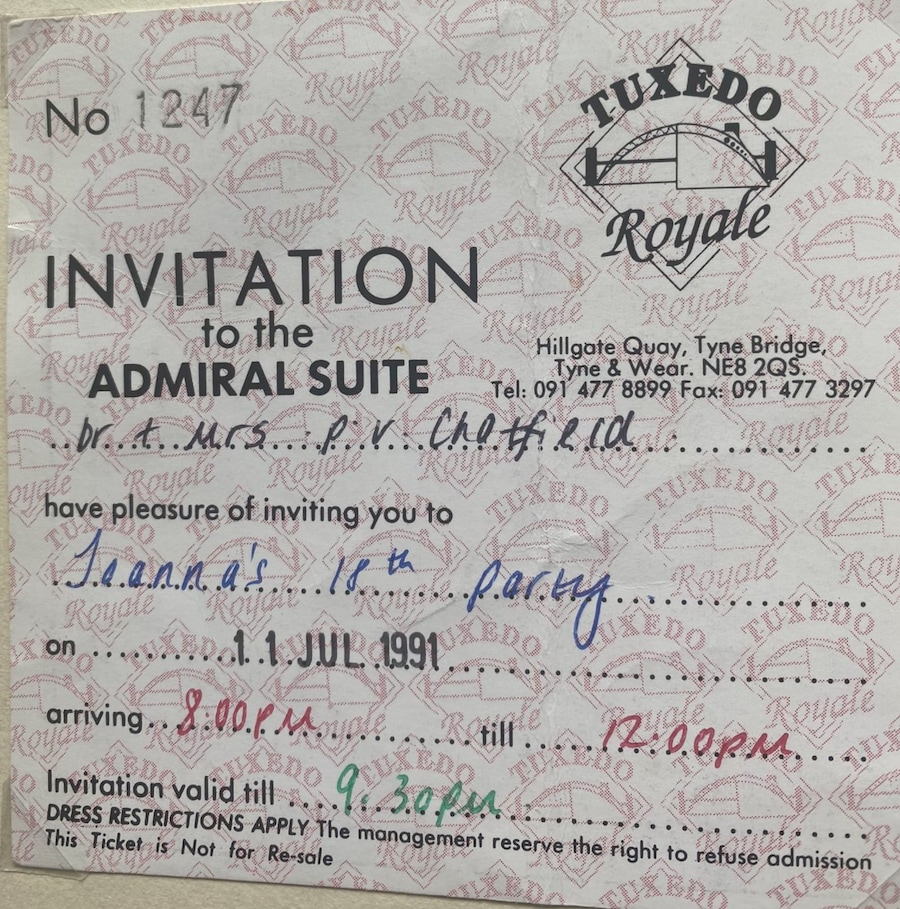 No 1247
TUXEDO
Royale
INVITATION
to the
ADMIRAL SUITE
Hillgate Quay, Tyne Bridge,
Tyne & Wear. NE8 2QS.
Tel: 091 477 8899 Fax: 091 477 3297
Dr + Mrs P.V. Chatfield
have pleasure of inviting you to
Jeanna's 18th party
on 11 JUL 1991
arriving 8.00PM till 12.00pm
Invitation valid till 9.30pm
DRESS RESTRICTIONS APPLY The management reserve the right to refuse admission
This Ticket is Not for Re-sale